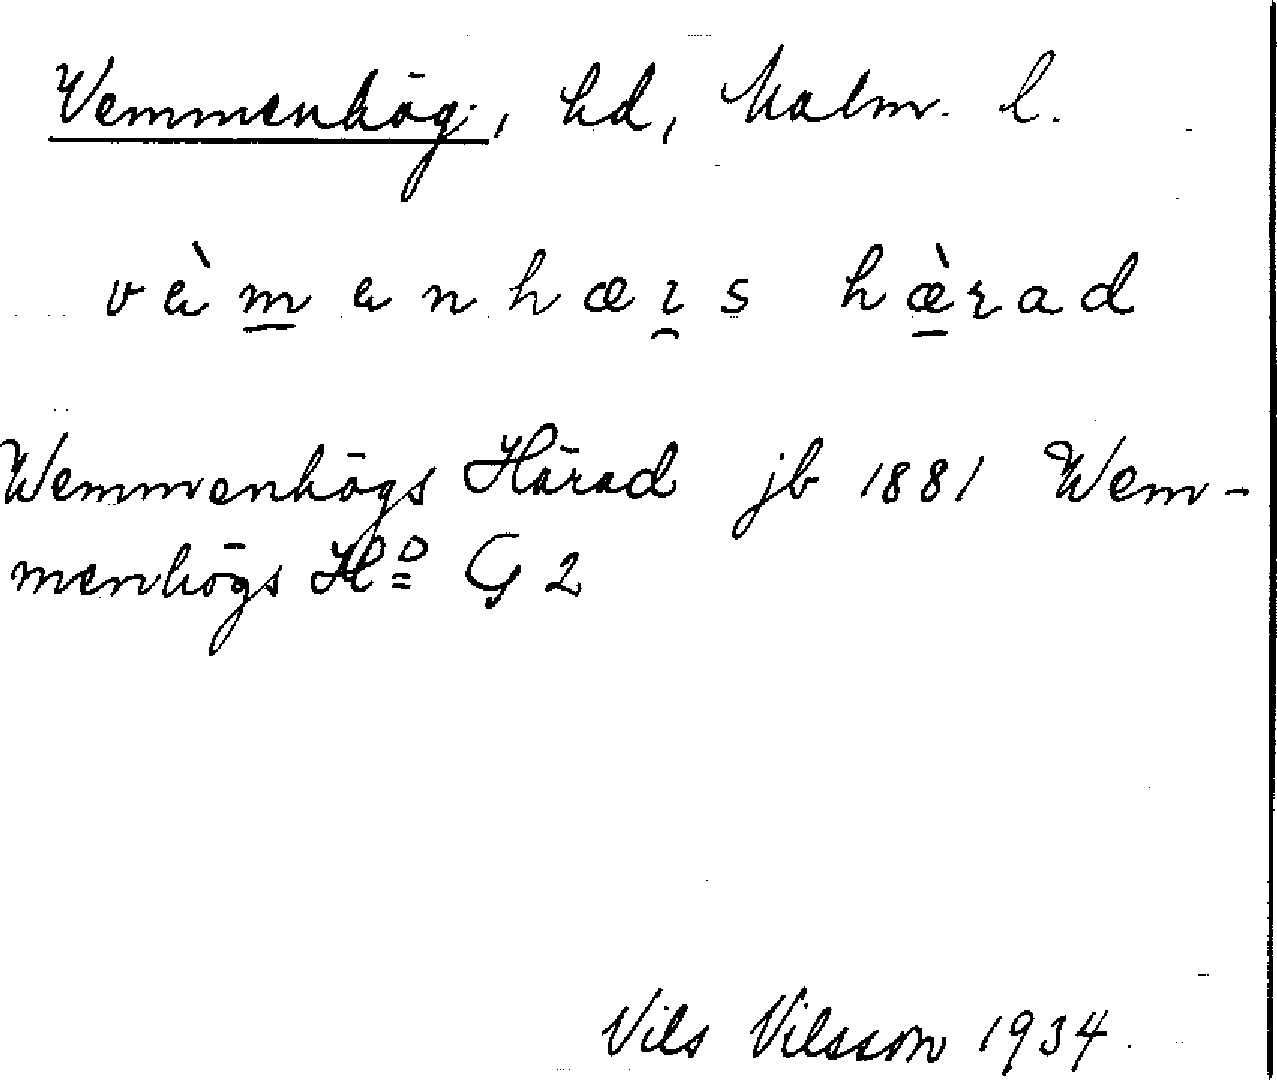 Vemmenhög, hd, Malm. l.
vàm̲anhæı̯s hæ̲̀rad
Wemmenhögs Härad jb 1881 Wem-
menhögs Hᴰ G 2
Nils Nilsson 1934.